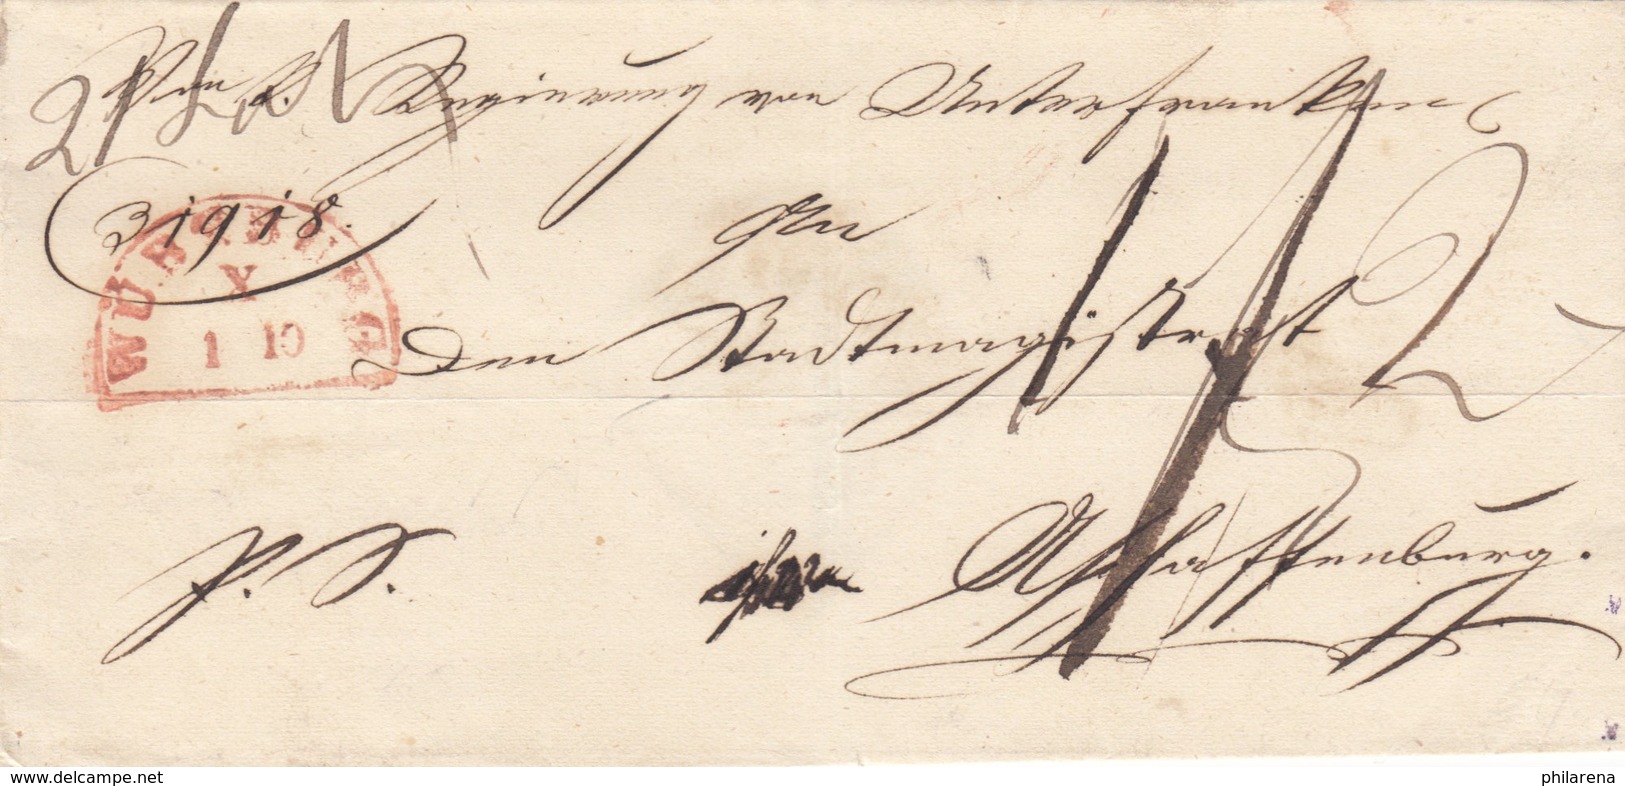 Von k. Regierung von Unterfranken
31918.
WÜRZBURG
X
1 10
An
den Stadtmagistrat
P. S.
Aschaffenburg.
www.delcampe.net
philarena